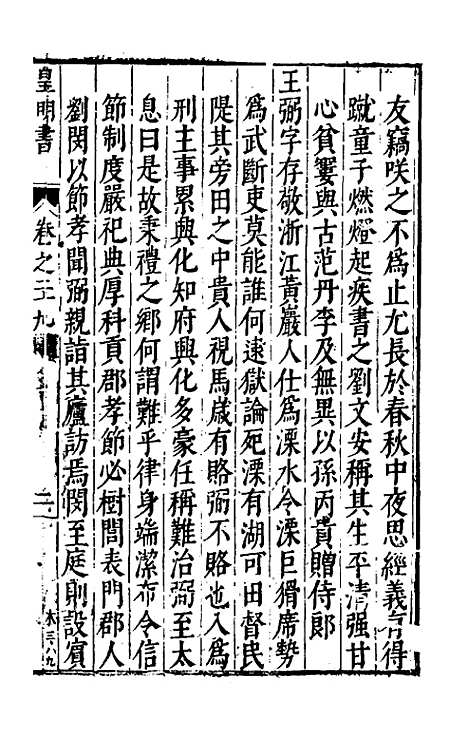 友竊咲之不為止尤長於春秋中夜思經義有得
蹴童子燃燈起疾書之劉文安稱其生平清强甘
心貧窶與古范丹李及無異以孫丙貴贈侍郎
王弼字存敬浙江黃巖人仕為溧水令溧巨猾席勢
為武斷吏莫能誰何逮獄論死溧有湖可田督民
隄其旁田之中貴人視馬歲有賂弼不賂也入為
刑主事累興化知府興化多豪任稱難治弼至太
息曰是故秉禮之鄉何謂難乎律身端潔布令信
節制度嚴祀典厚科貢郡孝節必樹閭表門郡人
劉閔以節孝聞弼親詣其廬訪焉閔至庭則設賓
皇明書
卷之三九
二